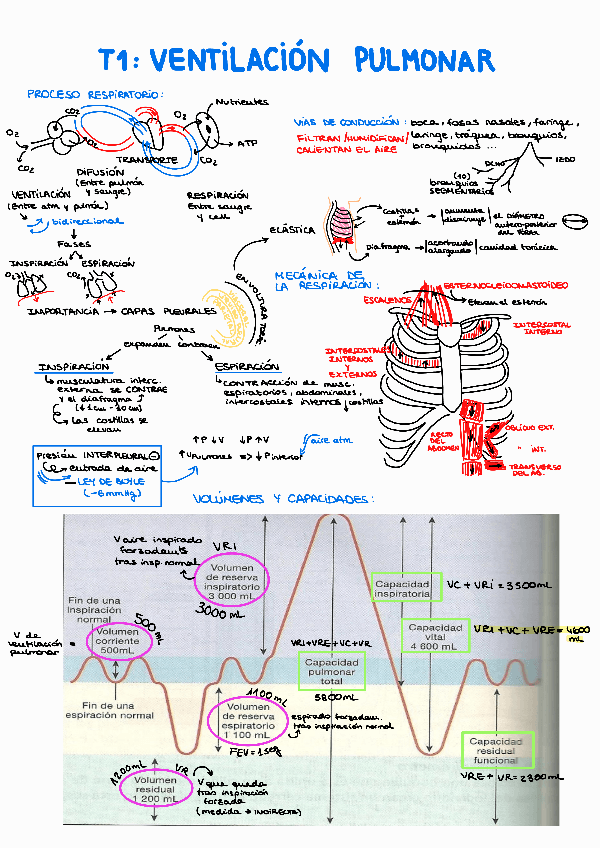 T1: VENTILACIÓN PULMONAR
PROCESO RESPIRATORIO:
CO2
O2
Nutrientes
O2
O2
ATP
CO2
TRANSPORTE
CO2
DIFUSIÓN
(Entre pulmón
y sangre)
VENTILACIÓN
(Entre atm y pulmón)
bidireccional
RESPIRACIÓN
Entre sangre
y cell
Fases
INSPIRACIÓN
ESPIRACIÓN
O2
CO2
IMPORTANCIA → CAPAS PLEURALES
Pulmones
expanden
contraen
ENVOLTURA TORAC
VÍAS DE CONDUCCIÓN: boca, fosas nasales, faringe,
FILTRAN/HUMIDIFICAN/
CALIENTAN EL AIRE
laringe, tráquea, bronquios,
bronquiolos...
DCHO
IZDO
(10)
bronquios
SEGMENTARIOS
ELÁSTICA
costillas
esternón
aumenta
disminuye
el DIÁMETRO
antero-posterior
del TÓRAX
Diafragma
acortando
alargando
cavidad torácica
MECÁNICA DE
LA RESPIRACIÓN:
ESTERNOCLEIDOMASTOIDEO
ESCALENOS
Elevan el esternón
INTERCOSTAL
INTERNO
INTERCOSTALES
INTERNOS
Y
EXTERNOS
RECTO
DEL
ABDOMEN
OBLICUO EXT.
" INT.
TRANSVERSO
DEL AB.
INSPIRACION
musculatura interc.
externa se CONTRAE
y el diafragma ↑
(±1cm - 10cm)
Las costillas se
elevan
ESPIRACIÓN
CONTRACCIÓN de musc.
espiratorios, abdominales,
intercostales internos ↓ costillas
Presión INTERPLEURAL ⊖
entrada de aire
LEY DE BOYLE
(-6mmHg)
↑P ↓V ↓P ↑V
aire atm
↑Vpulmones => ↓Pinterior
VOLÚMENES Y CAPACIDADES:
V aire inspirado
forzadamente
tras insp. normal
VRI
Volumen
de reserva
inspiratorio
3 000 mL
3000 mL
Capacidad
inspiratoria
VC + VRI = 3500mL
Fin de una
inspiración
normal
500 mL
V de
ventilación
pulmonar =
Volumen
corriente
500mL
Capacidad
vital
4 600 mL
VRI + VC + VRE = 4600
mL
VRI+VRE+VC+VR
Capacidad
pulmonar
total
5800mL
Fin de una
espiración normal
1100 mL
Volumen
de reserva
espiratorio
1 100 mL
espirado forzadam.
tras inspiración normal
Capacidad
residual
funcional
VRE + VR = 2300mL
1200mL
VR
Volumen
residual
1 200 mL
V que queda
tras inspiración
forzada
(medida → INDIRECTA)